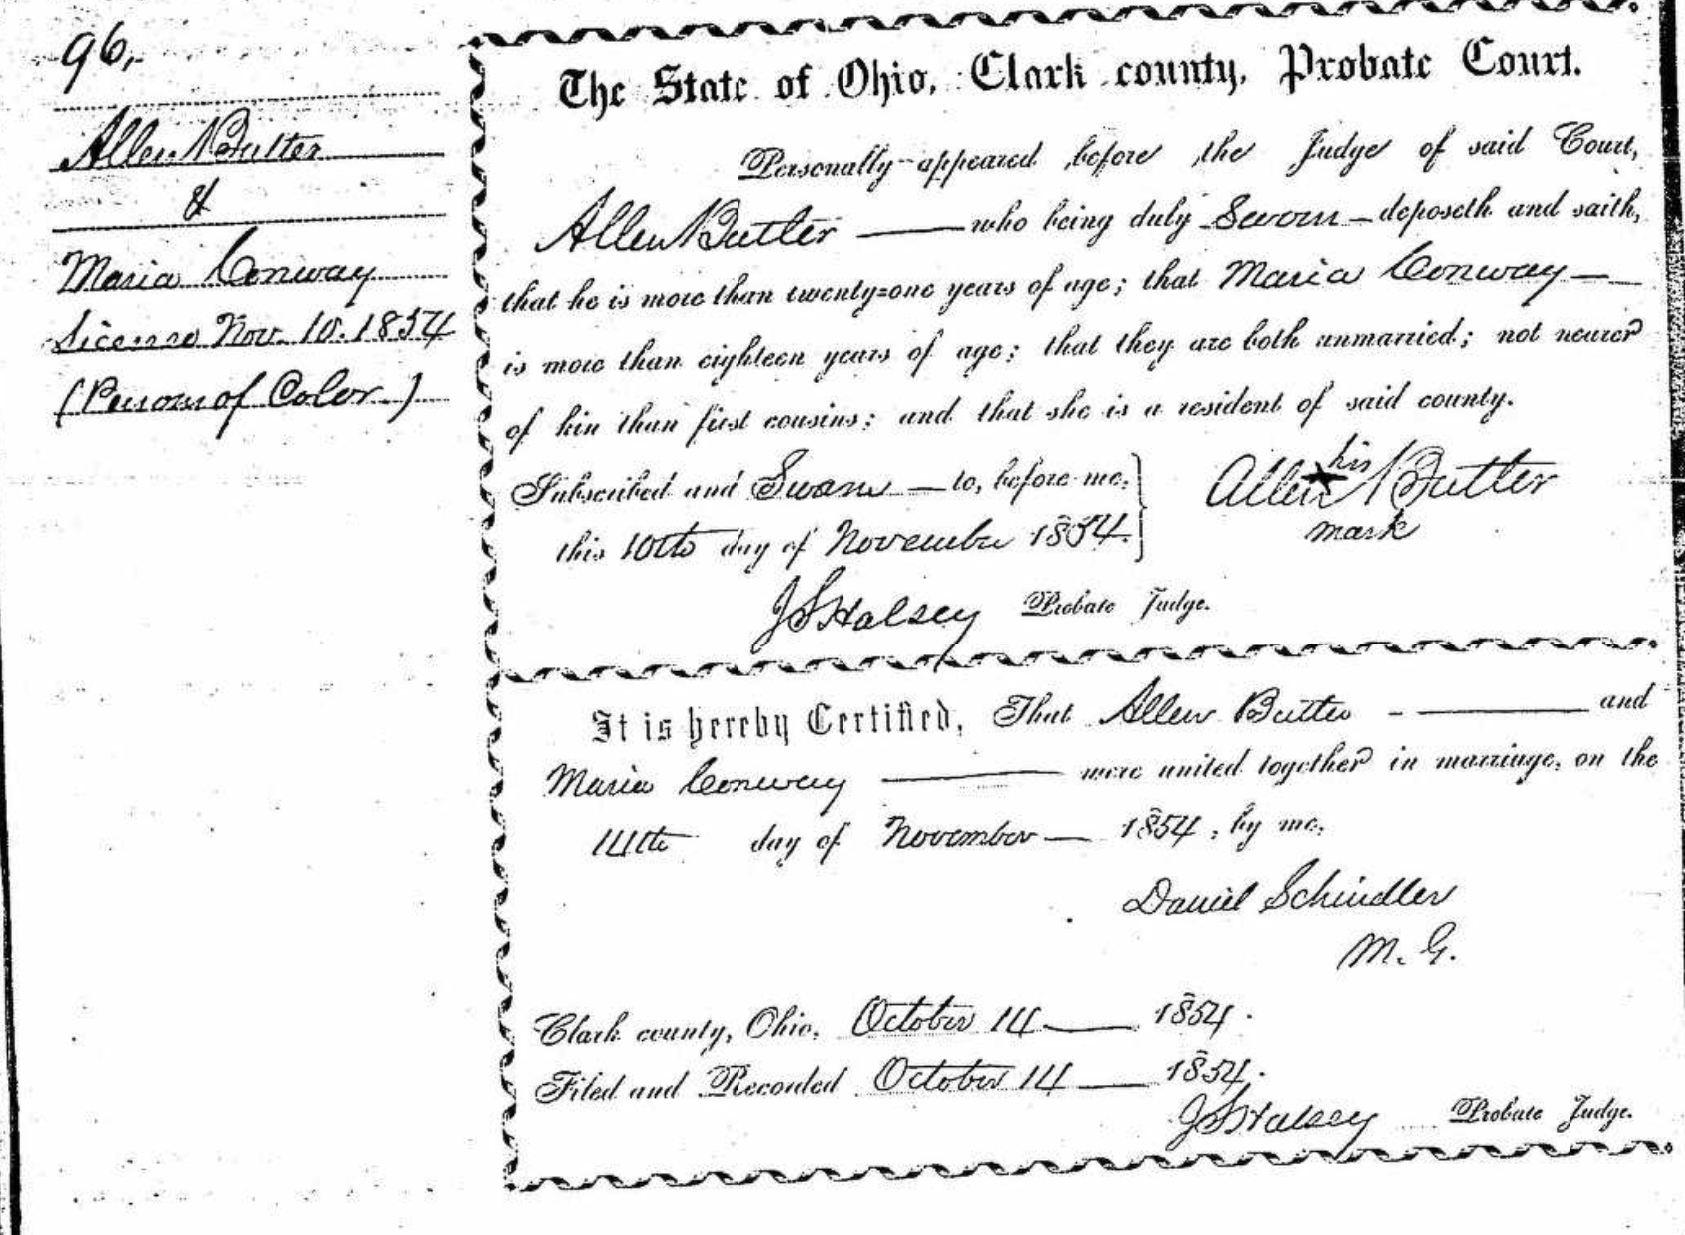 96,
Allen Butler
&
Maria Conway
License Nov. 10. 1854
(Persons of Color)
The State of Ohio, Clark county, Probate Court.
Personally appeared before the Judge of said Court,
Allen Butler who being duly Sworn deposeth and saith,
that he is more than twenty=one years of age; that Maria Conway
is more than eighteen years of age; that they are both unmarried; not nearer
of kin than first cousins; and that she is a resident of said county.
Subscribed and Sworn to, before me,
this 10th day of November 1854.
his
Allen Butler
mark
J S Halsey Probate Judge.
It is hereby Certified, That Allen Butler and
Maria Conway were united together in marriage, on the
14th day of November 1854, by me,
Daniel Schindler
M. G.
Clark county, Ohio, October 14 1854.
Filed and Recorded October 14 1854.
J S Halsey Probate Judge.